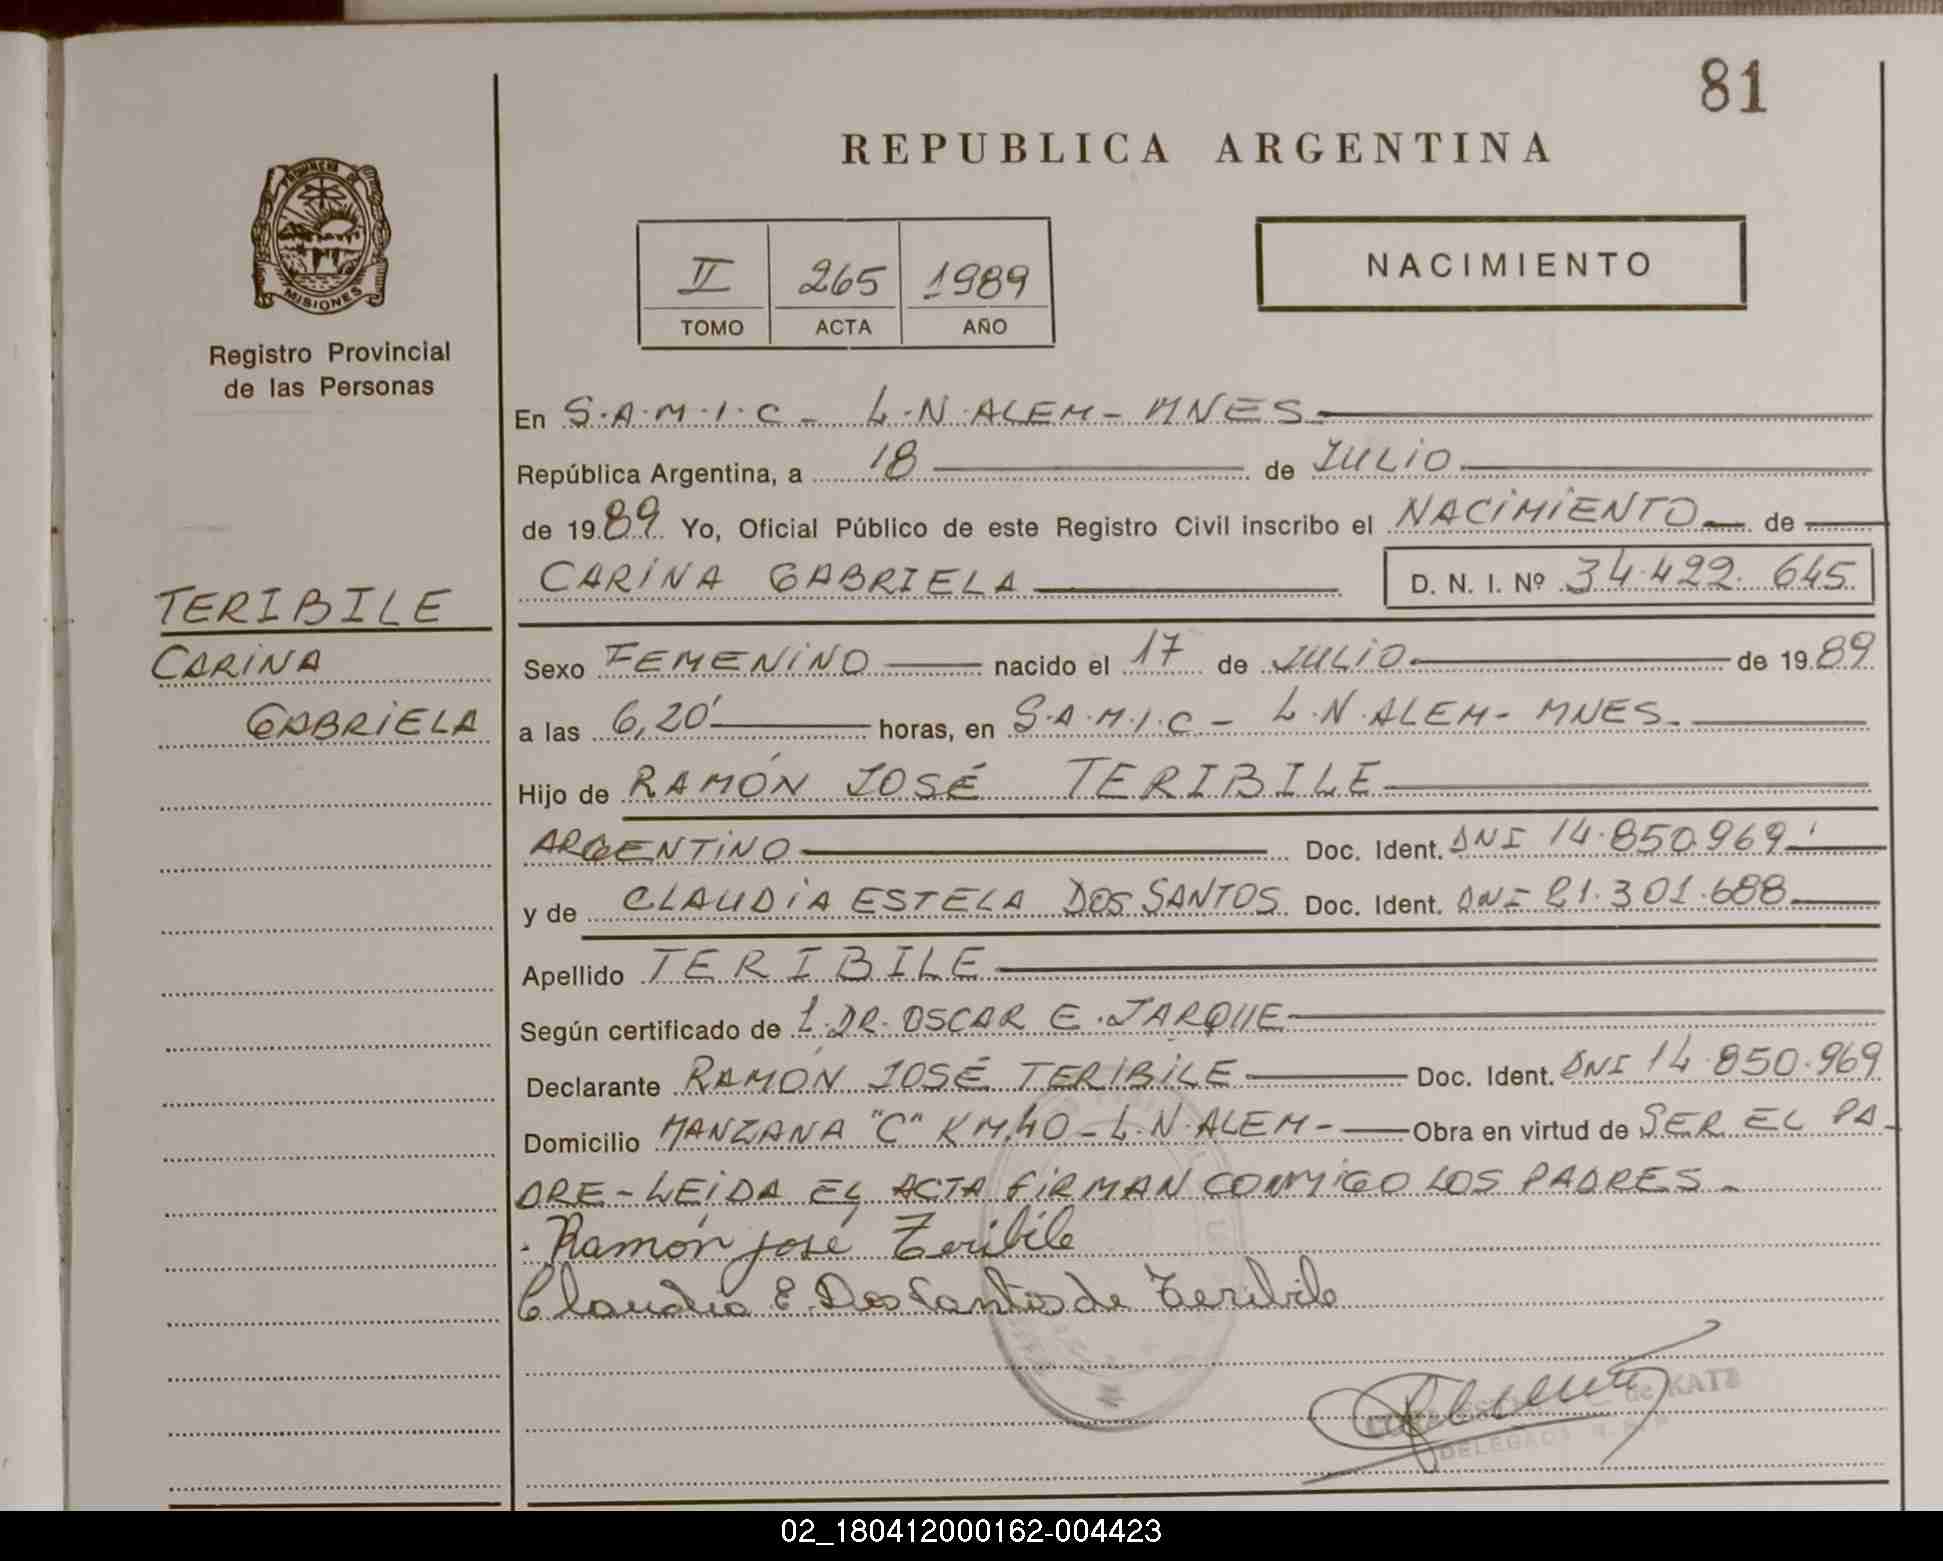 81
REPUBLICA ARGENTINA
PROVINCIA DE
MISIONES
Registro Provincial
de las Personas
II 265 1989
TOMO ACTA AÑO
NACIMIENTO
En S.A.M.I.C - L.N.ALEM - MNES
República Argentina, a 18 de JULIO
de 1989 Yo, Oficial Público de este Registro Civil inscribo el NACIMIENTO de
CARINA GABRIELA D. N. I. Nº 34.422.645
TERIBILE
CARINA
GABRIELA
Sexo FEMENINO nacido el 17 de JULIO de 1989
a las 6,20' horas, en S.A.M.I.C - L.N.ALEM - MNES.
Hijo de RAMÓN JOSÉ TERIBILE
ARGENTINO Doc. Ident. DNI 14.850.969
y de CLAUDIA ESTELA DOS SANTOS Doc. Ident. DNI 21.301.688
Apellido TERIBILE
Según certificado de 1.DR. OSCAR E. JARQUE
Declarante RAMÓN JOSÉ TERIBILE Doc. Ident. DNI 14.850.969
Domicilio MANZANA "C" KM.40 - L.N.ALEM - Obra en virtud de SER EL PA-
DRE - LEIDA EL ACTA FIRMAN CONMIGO LOS PADRES -
Ramón José Teribile
Claudia E. Dos Santos de Teribile
de KATZ
DELEGADA
02_180412000162-004423